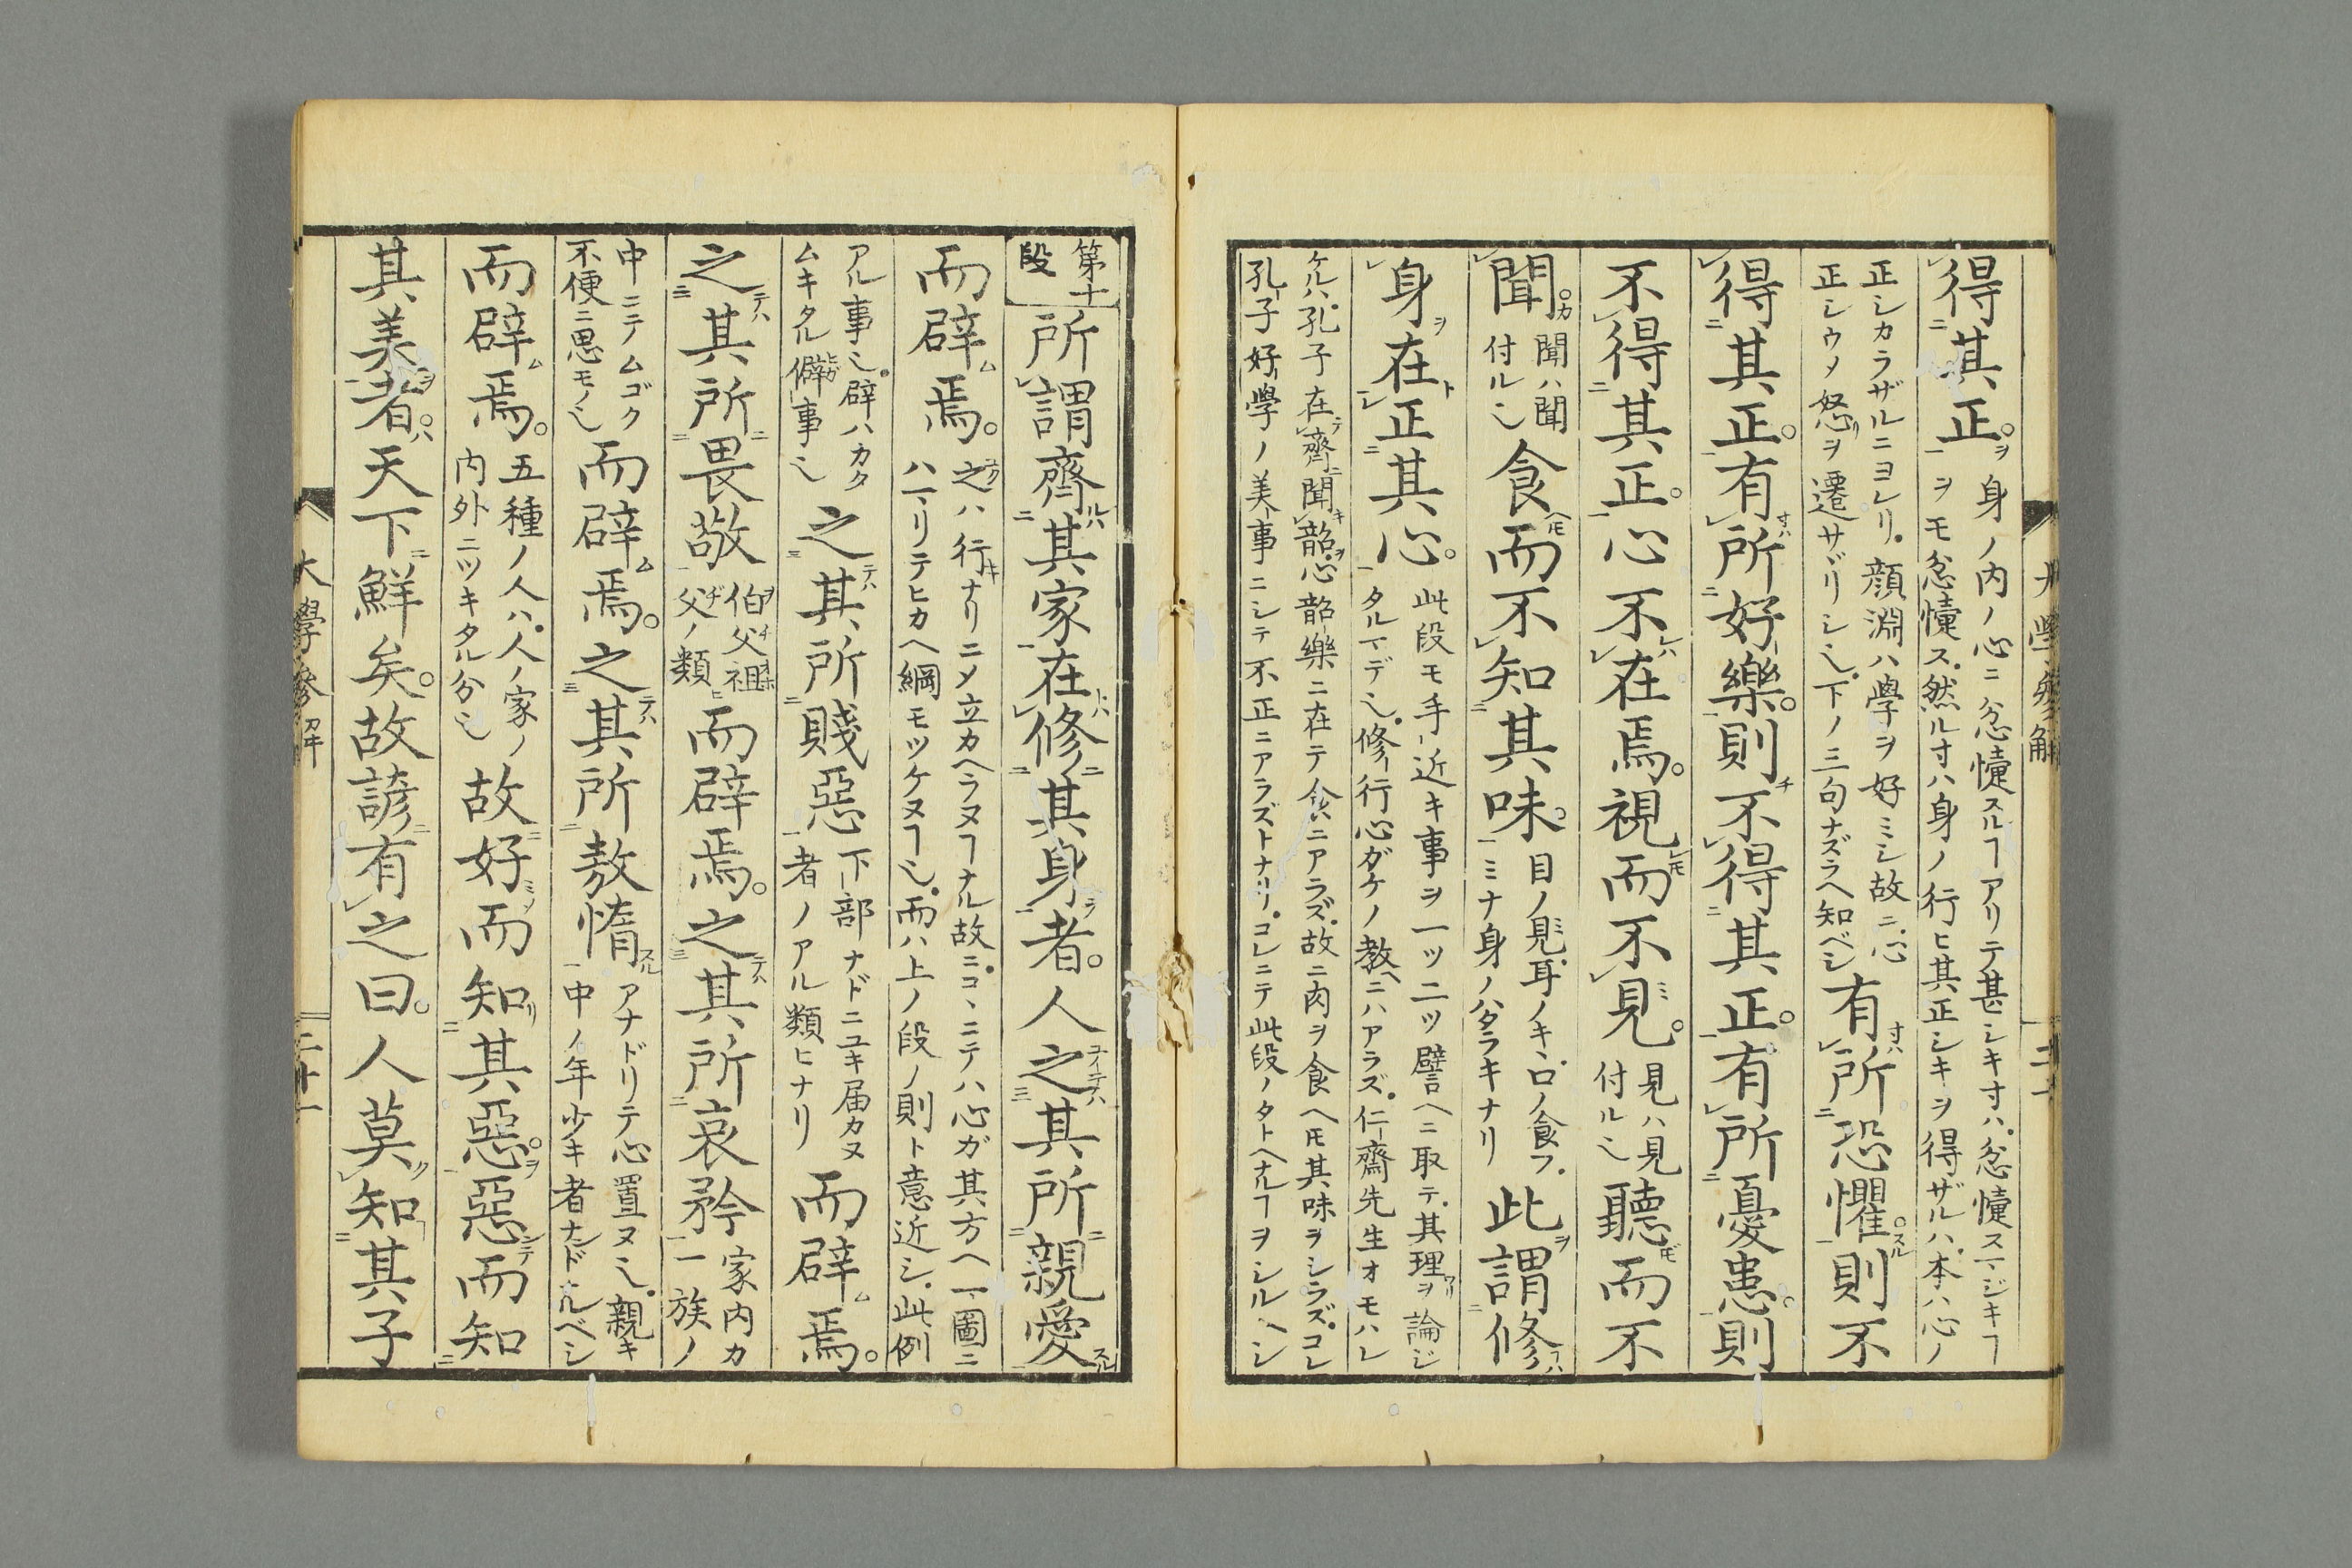 大學參解
二十
得其正。
身ノ内ノ心ニ忿懥スルヿアリテ甚シキ寸ハ忿懥スマジキヿ
ヲモ忿懥ス然ル寸ハ身ノ行ヒ其正シキヲ得ザルハ本ハ心ノ
正シカラザルニヨレリ。顔淵ハ學ヲ好ミシ故ニ心
正シウメ怒ヲ遷サヾリシ也。下ノ三句ナズラヘ知ベシ
有所恐懼。則不
得其正。有所好樂。則不得其正。有所憂患。則
不得其正。心不在焉。視而不見。
見ハ見
付ル也
聽而不
聞。
聞ハ聞
付ル也
食而不知其味。
目ノ見耳ノキヽ口ノ食フ
ミナ身ノハタラキナリ
此謂修
身在正其心。
此段モ手近キ事ヲ一ツ二ツ譬ヘニ取テ其理ヲ論ジ
タルマデ也。修行心ガケノ教ヘニハアラズ。仁齋先生オモハレ
ケルハ孔子在齊聞韶心韶樂ニ在テ食ニアラズ故ニ肉ヲ食ヘ𪜈其味ヲシラズコレ
孔子好學ノ美事ニシテ不正ニアラズトナリ。コレニテ此段ノタトヘナルヿヲシルベシ
第十
段
所謂齊其家在修其身者。人之其所親愛
而辟焉。
之ハ行ナリニメ立カヘラヌヿナル故ニコヽニテハ心ガ其方ヘ一圖ニ
ハマリテヒカヘ綱モツケヌヿ也。而ハ上ノ段ノ則ト意近シ此例
アル事也。辟ハカタ
ムキタル僻事也
之其所賤惡
下部ナドニユキ届カヌ
者ノアル類ヒナリ
而辟焉。
之其所畏敬
伯父祖
父ノ類
而辟焉。之其所哀矜
家内カ
一族ノ
中ニテムゴク
不便ニ思モノ也
而辟焉。之其所敖惰
アナドリテ心置ヌ也。親キ
中ノ年少キ者ナドナルベシ
而辟焉。
五種ノ人ハ人ノ家ノ
内外ニツキタル分也
故好而知其惡。惡而知
其美者。天下鮮矣。故諺有之曰。人莫知其子
大學參解
二十一